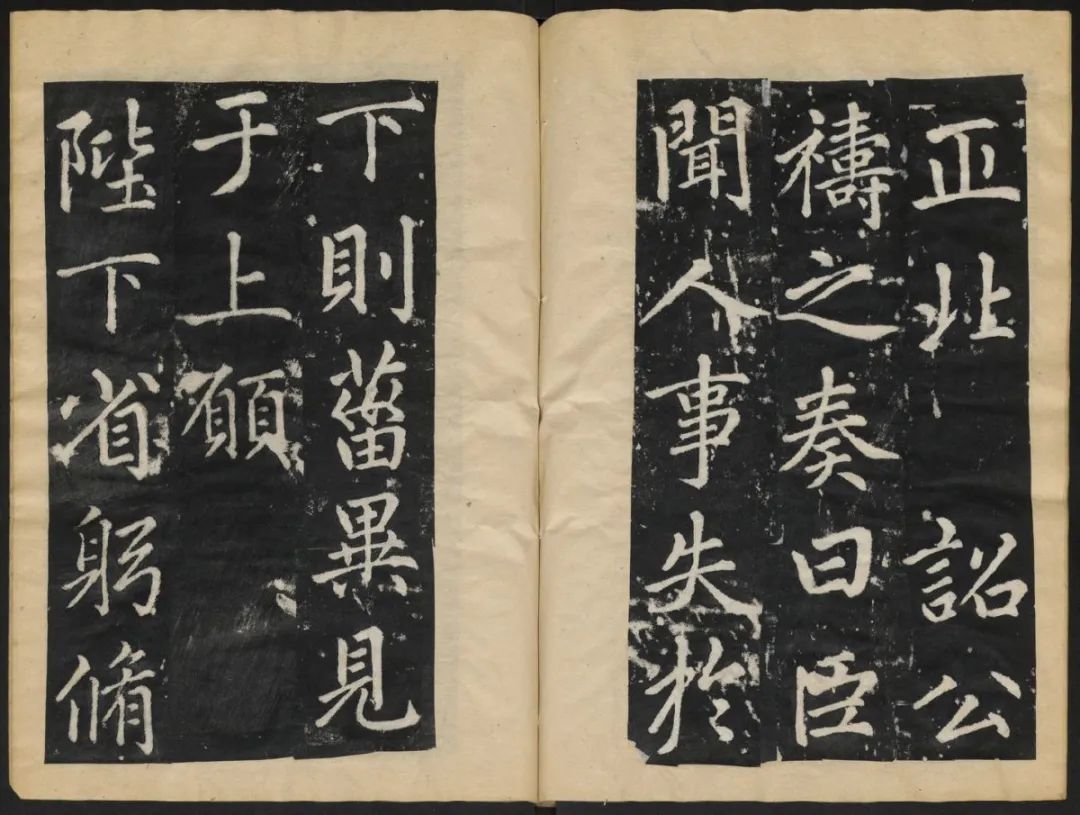 正北 詔公
禱之奏曰臣
聞人事失於
下則菑異見
于上願
陛下省躬脩